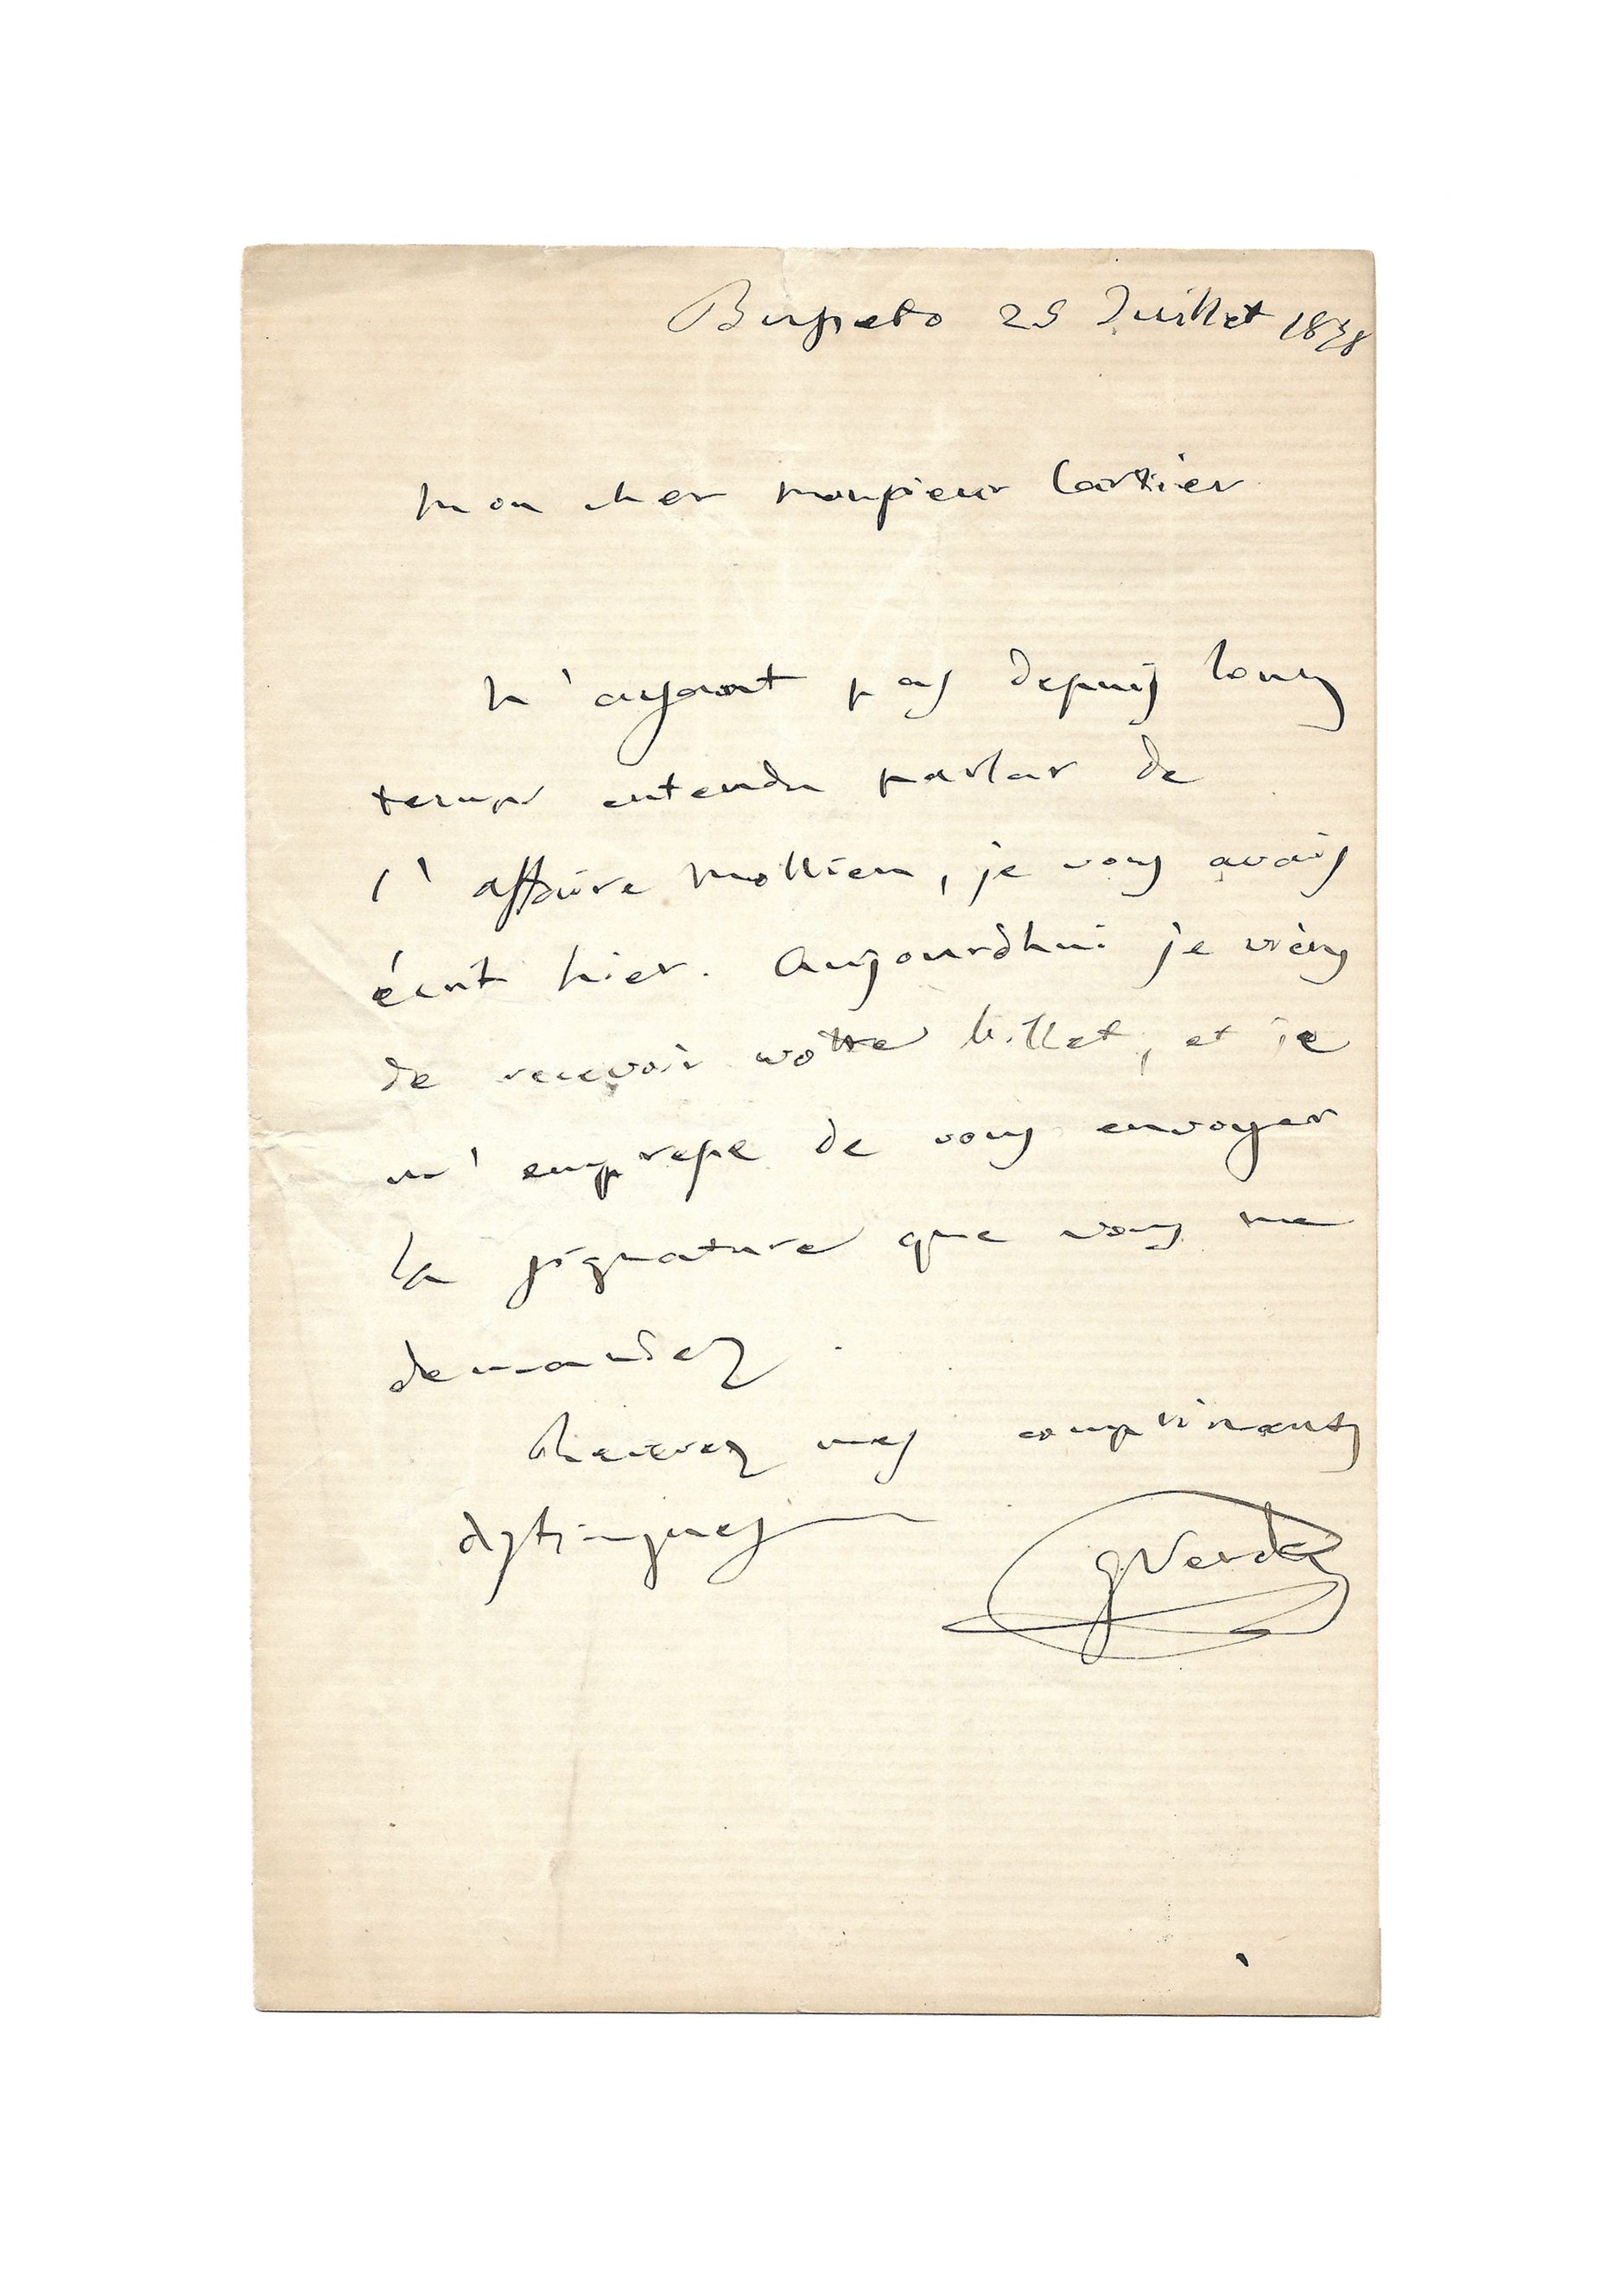 Busseto 25 Juillet 1878
Mon cher monsieur Cartier
N'ayant pas depuis long
temps entendu parler de
l'affaire Mollien, je vous avais
écrit hier. Aujourdhui je viens
de recevoir votre billet, et je
m'empresse de vous envoyer
la signature que vous me
demandez.
Recevez mes compliments
distingues
GVerdi